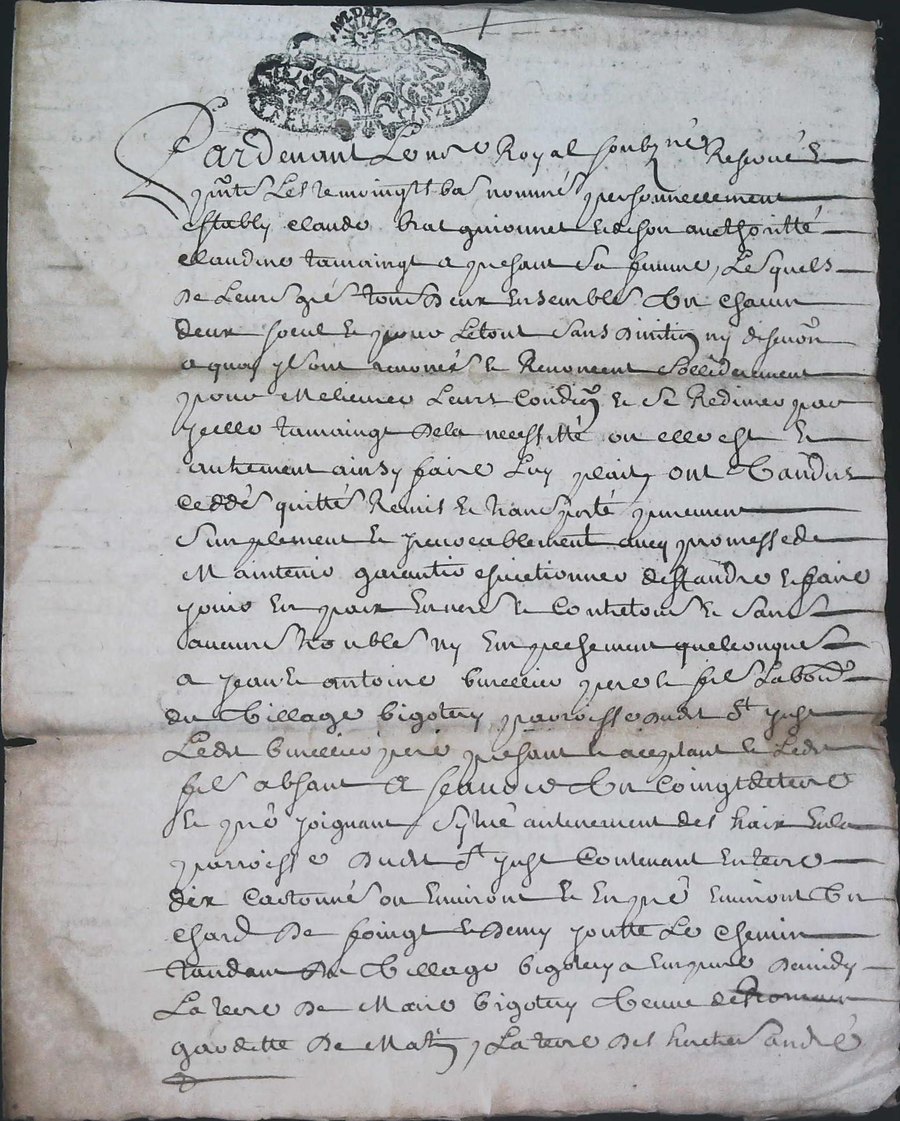 Pardevant Le nore Royal soubzné Reservé Et
pnts Les temoingtz bas nommés personnellement
establÿ claude brat guionnet Et de son aucthoritté
claudine tamaingt a presant sa femme, Lesquels
De Leurs gré tous Deux Ensembles Un chacun
deux seul Et pour Le tout sans division ny
a quoy Ils ont renoncés Et Renoncent sollidérement
pour Meliorer Leurs Condion Et se Redimer par
ycelle tamaingt De la necessitté ou elle est Et
autrement ainsy faire Luy plait, ont Vandus
ceddés quittés Remis Et transporté purement
simplement Et yrevocablement avecq promesse de
Maintenir garantir deffandre Et faire
jouir En paix Envers Et Contre tous Et sans
aucuns troubles ny Empeschement quelconques
a jean Et antoine burellier pere Et fils Labour
du Village bigotery parroisse dudit St just
Ledit burellier pere presant Et aceptant Et Ledit
fils absant Un Coingt de terre
Et pré joignant sytué au tenement des hair En la
parroisse dudit St just Contenant En terre
dix Cartonnés ou Environt Et En pré Environt Un
chard De foingt Et Demy joutte Le chemin
tandant Du Village bigotery a De midy
La terre De Marie bigotery Veuve de
gardette De Matin, La terre Des hertiers andré